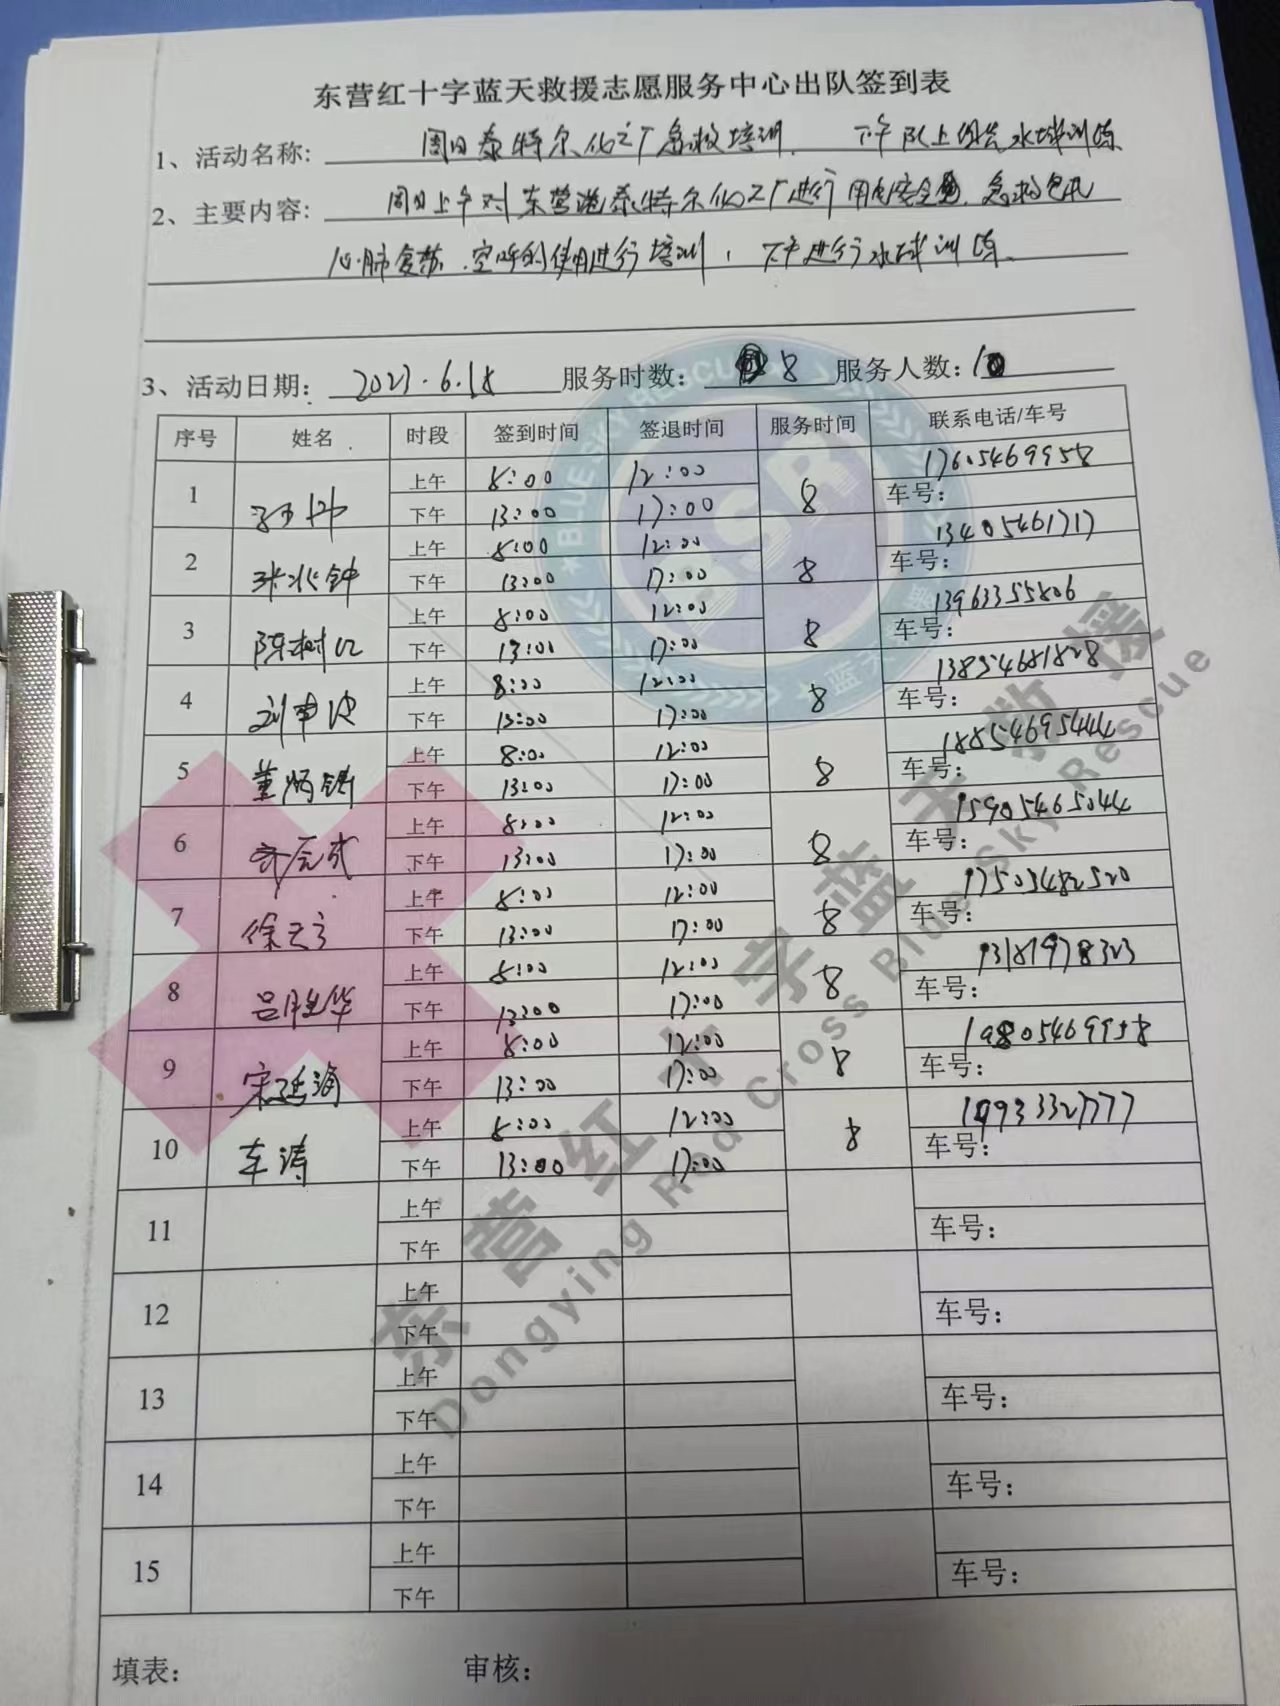 东营红十字蓝天救援志愿服务中心出队签到表
1、活动名称: 周日泰特尔化工厂急救培训. 下午队上组织水域训练
2、主要内容: 周日上午对东营港泰特尔化工厂进行用电安全, 急救包扎
心肺复苏、空呼的使用进行培训, 下午进行水域训练.
3、活动日期: 2023.6.18 服务时数: 8 服务人数: 10
序号 姓名 时段 签到时间 签退时间 服务时间 联系电话/车号
1 上午 8:00 12:00 8 17605469958
下午 13:00 17:00 车号:
2 张兆钟 上午 8:00 12:00 8 13405461717
下午 13:00 17:00 车号:
3 陈树江 上午 8:00 12:00 8 13963355806
下午 13:00 17:00 车号:
4 刘申波 上午 8:00 12:00 8 13854681828
下午 13:00 17:00 车号:
5 董炳 上午 8:00 12:00 8 18854695444
下午 13:00 17:00 车号:
6 上午 8:00 12:00 8 15905465044
下午 13:00 17:00 车号:
7 上午 8:00 12:00 8 17503482520
下午 13:00 17:00 车号:
8 吕胜华 上午 8:00 12:00 8 13181978323
下午 13:00 17:00 车号:
9 宋延涛 上午 8:00 12:00 8 19805469958
下午 13:00 17:00 车号:
10 车涛 上午 8:00 12:00 8 19933327777
下午 13:00 17:00 车号:
11 上午
下午 车号:
12 上午
下午 车号:
13 上午
下午 车号:
14 上午
下午 车号:
15 上午
下午 车号:
填表: 审核:
东营红十字蓝天救援
Dongying Red Cross Blue Sky Rescue